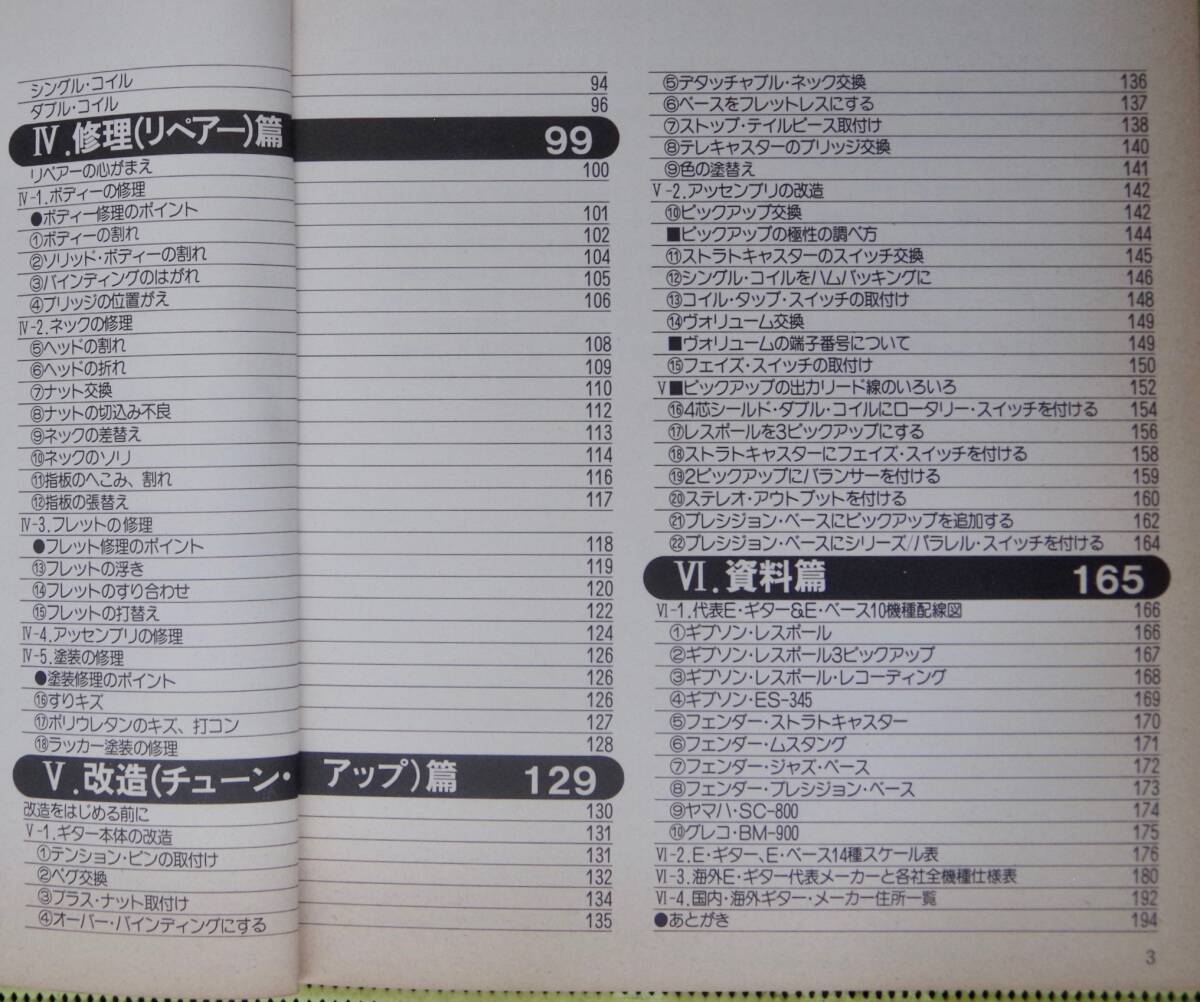 シングル・コイル 94
ダブル・コイル 96
Ⅳ.修理(リペアー)篇 99
リペアーの心がまえ 100
Ⅳ-1.ボディーの修理
●ボディー修理のポイント 101
①ボディーの割れ 102
②ソリッド・ボディーの割れ 104
③バインディングのはがれ 105
④ブリッジの位置がえ 106
Ⅳ-2.ネックの修理
⑤ヘッドの割れ 108
⑥ヘッドの折れ 109
⑦ナット交換 110
⑧ナットの切込み不良 112
⑨ネックの差替え 113
⑩ネックのソリ 114
⑪指板のへこみ、割れ 116
⑫指板の張替え 117
Ⅳ-3.フレットの修理
●フレット修理のポイント 118
⑬フレットの浮き 119
⑭フレットのすり合わせ 120
⑮フレットの打替え 122
Ⅳ-4.アッセンブリの修理 124
Ⅳ-5.塗装の修理 126
●塗装修理のポイント 126
⑯すりキズ 126
⑰ポリウレタンのキズ、打コン 127
⑱ラッカー塗装の修理 128
Ⅴ.改造(チューン・アップ)篇 129
改造をはじめる前に 130
Ⅴ-1.ギター本体の改造 131
①テンション・ピンの取付け 131
②ペグ交換 132
③ブラス・ナット取付け 134
④オーバー・バインディングにする 135
⑤デタッチャブル・ネック交換 136
⑥ベースをフレットレスにする 137
⑦ストップ・テイルピース取付け 138
⑧テレキャスターのブリッジ交換 140
⑨色の塗替え 141
Ⅴ-2.アッセンブリの改造 142
⑩ピックアップ交換 142
■ピックアップの極性の調べ方 144
⑪ストラトキャスターのスイッチ交換 145
⑫シングル・コイルをハムバッキングに 146
⑬コイル・タップ・スイッチの取付け 148
⑭ヴォリューム交換 149
■ヴォリュームの端子番号について 149
⑮フェイズ・スイッチの取付け 150
Ⅴ■ピックアップの出力リード線のいろいろ 152
⑯4芯シールド・ダブル・コイルにロータリー・スイッチを付ける 154
⑰レスポールを3ピックアップにする 156
⑱ストラトキャスターにフェイズ・スイッチを付ける 158
⑲2ピックアップにバランサーを付ける 159
⑳ステレオ・アウトプットを付ける 160
㉑プレシジョン・ベースにピックアップを追加する 162
㉒プレシジョン・ベースにシリーズ/パラレル・スイッチを付ける 164
Ⅵ.資料篇 165
Ⅵ-1.代表E・ギター&E・ベース10機種配線図 166
①ギブソン・レスポール 166
②ギブソン・レスポール3ピックアップ 167
③ギブソン・レスポール・レコーディング 168
④ギブソン・ES-345 169
⑤フェンダー・ストラトキャスター 170
⑥フェンダー・ムスタング 171
⑦フェンダー・ジャズ・ベース 172
⑧フェンダー・プレシジョン・ベース 173
⑨ヤマハ・SC-800 174
⑩グレコ・BM-900 175
Ⅵ-2.E・ギター、E・ベース14種スケール表 176
Ⅵ-3.海外E・ギター代表メーカーと各社全機種仕様表 180
Ⅵ-4.国内・海外ギター・メーカー住所一覧 192
●あとがき 194
3